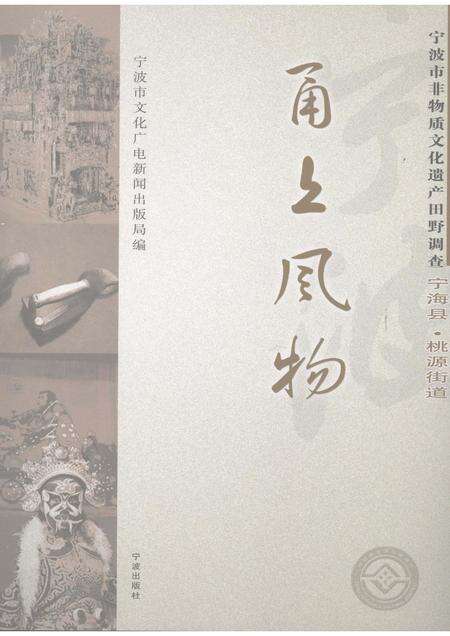 宁波市非物质文化遗产田野调查
宁海县·桃源街道
甬上风物
宁波市文化广电新闻出版局编
宁波出版社